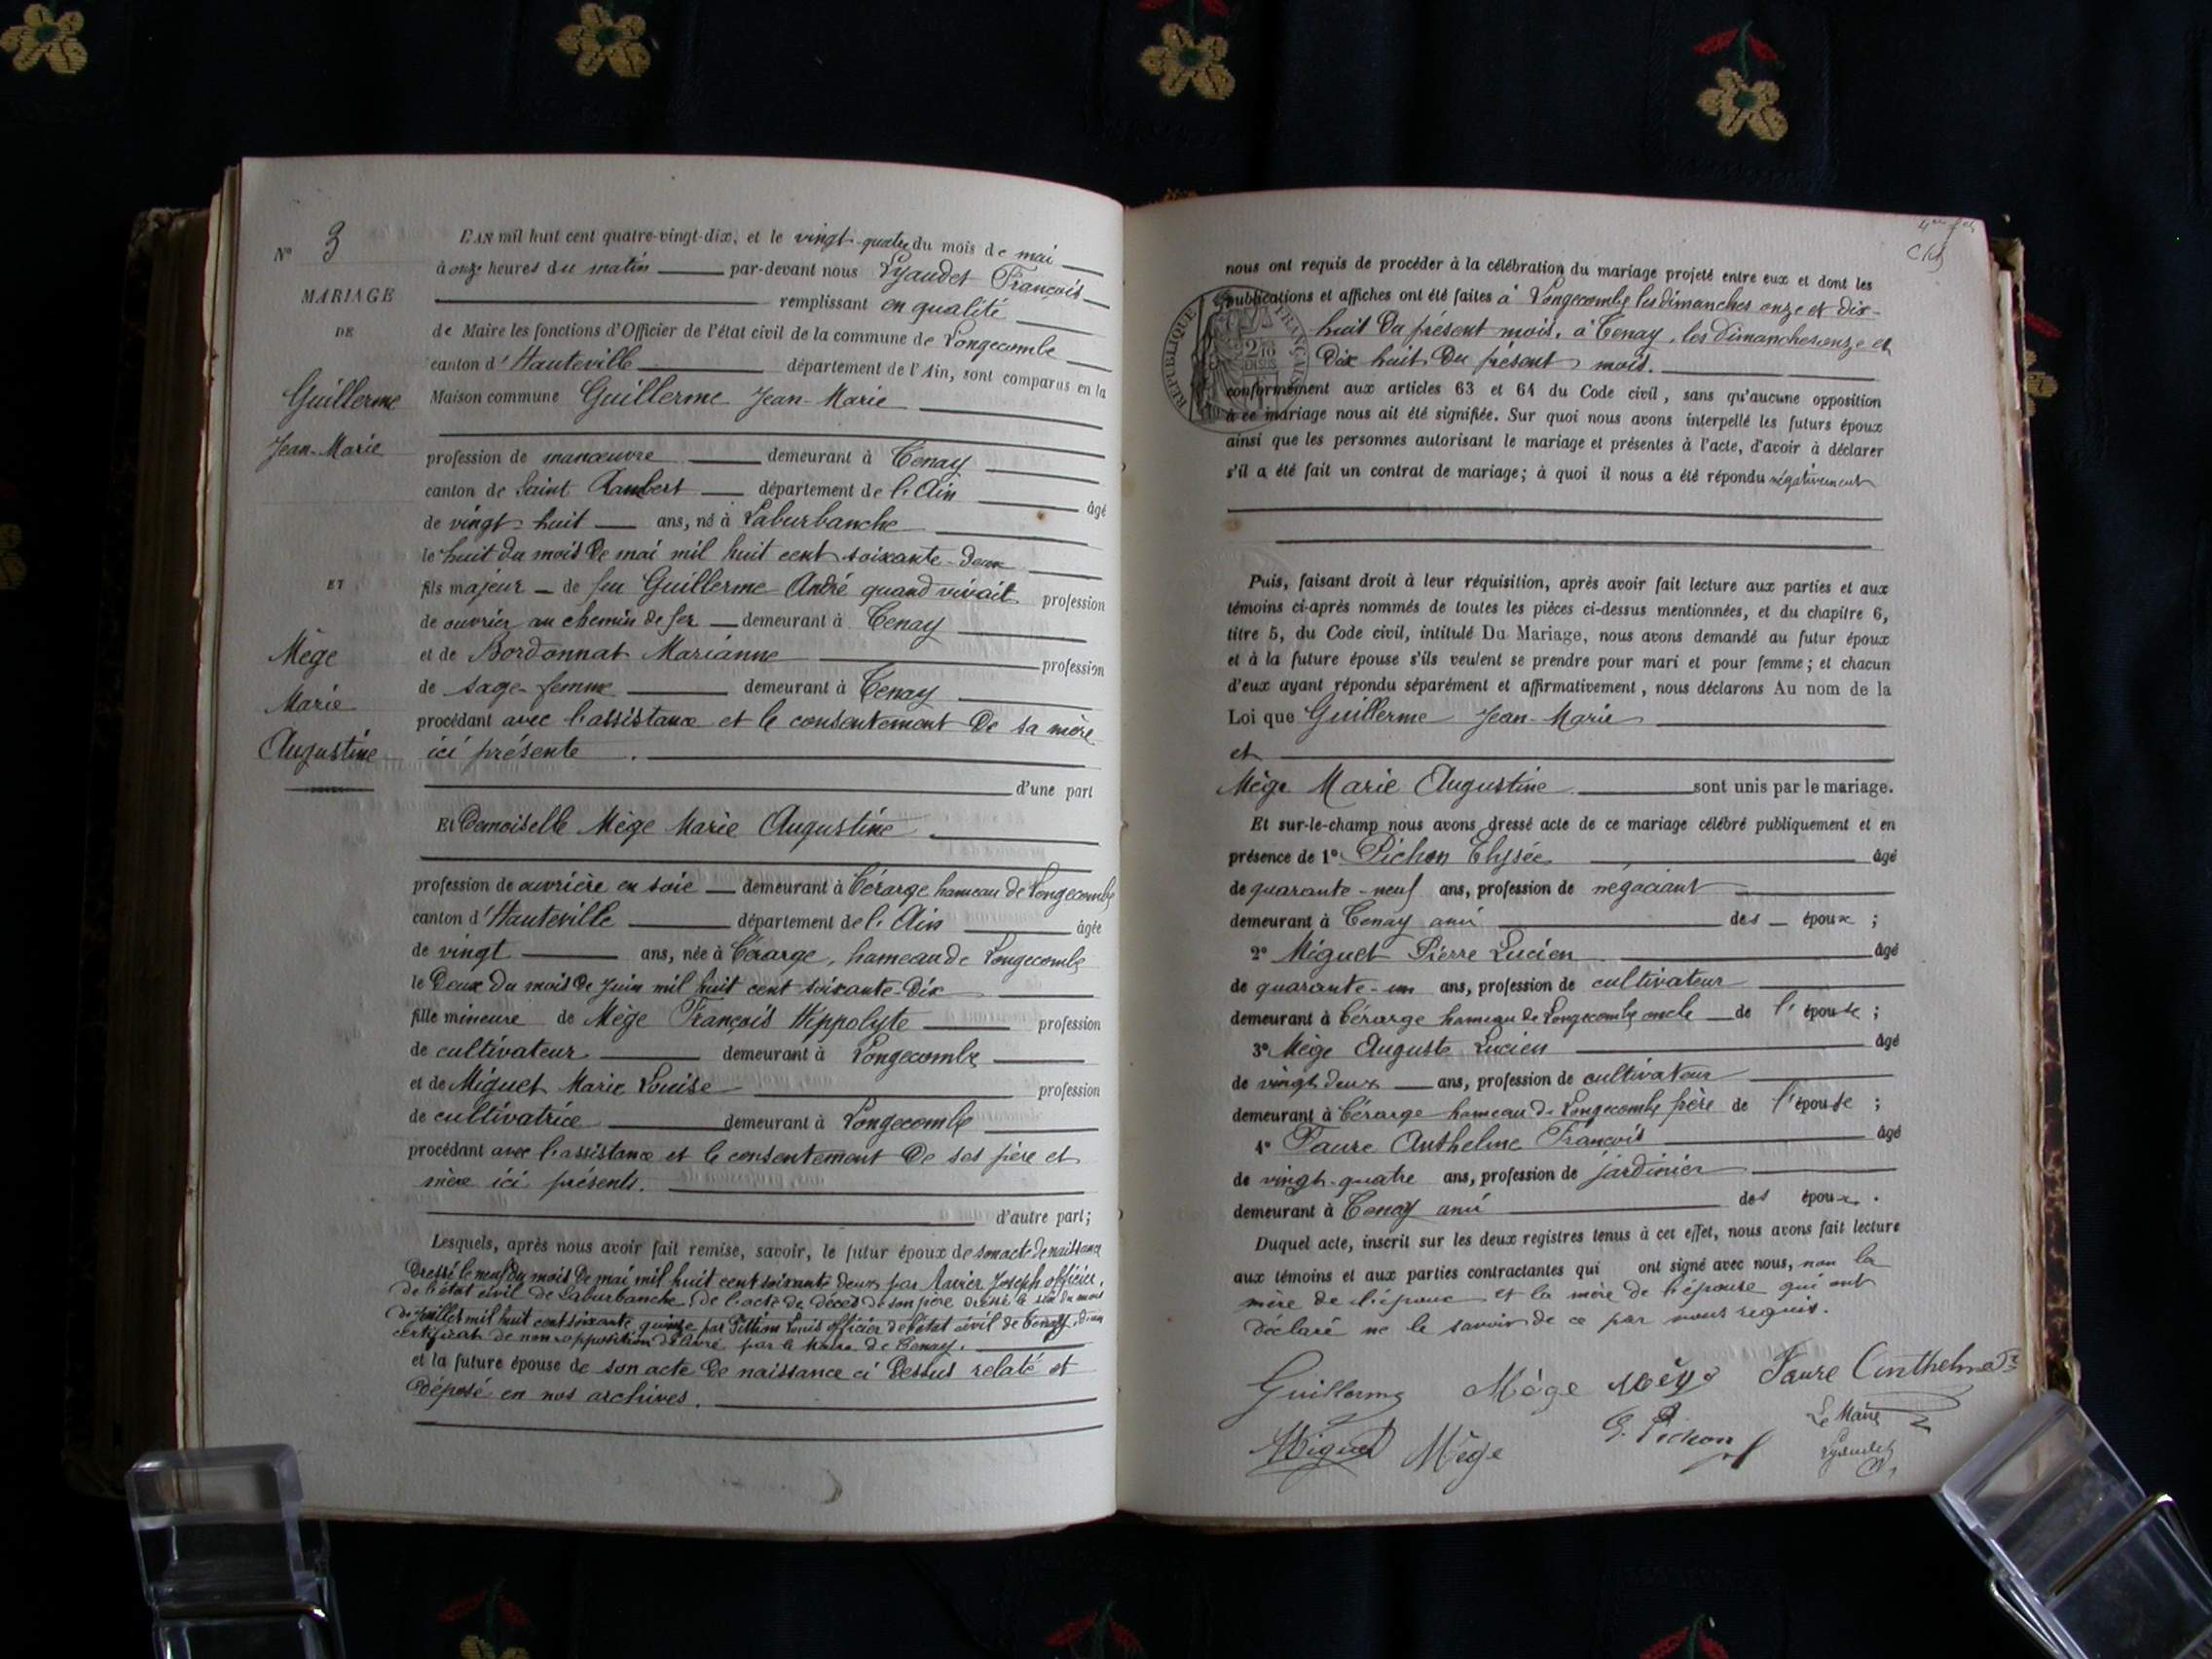 N° 3
MARIAGE
DE
Guillerme
Jean-Marie
ET
Mège
Marie
Augustine
L'AN mil huit cent quatre-vingt-dix, et le vingt-quatre du mois de mai
à onze heures du matin par-devant nous Lyaudet François
remplissant en qualité
de Maire les fonctions d'Officier de l'état civil de la commune de Longecombe
canton d'Hauteville département de l'Ain, sont comparus en la
Maison commune Guillerme Jean-Marie
profession de manœuvre demeurant à Tenay
canton de Saint Rambert département de l'Ain âgé
de vingt-huit ans, né à Laburbanche
le huit du mois de mai mil huit cent soixante-deux
fils majeur de feu Guillerme André quand vivait profession
de ouvrier au chemin de fer demeurant à Tenay
et de Bordonnat Marianne profession
de sage-femme demeurant à Tenay
procédant avec l'assistance et le consentement de sa mère
ici présente.
d'une part
Et Demoiselle Mège Marie Augustine
profession de ouvrière en soie demeurant à Cérarge hameau de Longecombe
canton d'Hauteville département de l'Ain âgée
de vingt ans, née à Cérarge, hameau de Longecombe
le deux du mois de juin mil huit cent soixante-dix
fille mineure de Mège François Hippolyte profession
de cultivateur demeurant à Longecombe
et de Miguet Marie Louise profession
de cultivatrice demeurant à Longecombe
procédant avec l'assistance et le consentement de ses père et
mère ici présents.
d'autre part;
Lesquels, après nous avoir fait remise, savoir, le futur époux de son acte de naissance
dressé le neuf du mois de mai mil huit cent soixante deux par Joseph officier
de l'état civil de Laburbanche, de l'acte de décès de son père dressé le six du mois
de juillet mil huit cent soixante quinze par Louis officier de l'état civil de Tenay, d'un
certificat de non opposition délivré par le Maire de Tenay.
et la future épouse de son acte de naissance ci dessus relaté et
déposé en nos archives.
nous ont requis de procéder à la célébration du mariage projeté entre eux et dont les
publications et affiches ont été faites à Longecombe les dimanches onze et dix-
huit du présent mois, à Tenay, les dimanches onze et
dix huit du présent mois.
RÉPUBLIQUE FRANÇAISE
conformément aux articles 63 et 64 du Code civil, sans qu'aucune opposition
à ce mariage nous ait été signifiée. Sur quoi nous avons interpellé les futurs époux
ainsi que les personnes autorisant le mariage et présentes à l'acte, d'avoir à déclarer
s'il a été fait un contrat de mariage; à quoi il nous a été répondu négativement
Puis, faisant droit à leur réquisition, après avoir fait lecture aux parties et aux
témoins ci-après nommés de toutes les pièces ci-dessus mentionnées, et du chapitre 6,
titre 5, du Code civil, intitulé Du Mariage, nous avons demandé au futur époux
et à la future épouse s'ils veulent se prendre pour mari et pour femme; et chacun
d'eux ayant répondu séparément et affirmativement, nous déclarons Au nom de la
Loi que Guillerme Jean-Marie
et
Mège Marie Augustine sont unis par le mariage.
Et sur-le-champ nous avons dressé acte de ce mariage célébré publiquement et en
présence de 1° Pichon Elysée âgé
de quarante-neuf ans, profession de négociant
demeurant à Tenay ami des époux;
2° Miguet Pierre Lucien âgé
de quarante-un ans, profession de cultivateur
demeurant à Cérarge hameau de Longecombe oncle de l'épouse;
3° Mège Auguste Lucien âgé
de vingt deux ans, profession de cultivateur
demeurant à Cérarge hameau de Longecombe frère de l'épouse;
4° Faure Anthelme François âgé
de vingt-quatre ans, profession de jardinier
demeurant à Tenay ami des époux.
Duquel acte, inscrit sur les deux registres tenus à cet effet, nous avons fait lecture
aux témoins et aux parties contractantes qui ont signé avec nous, non la
mère de l'époux et la mère de l'épouse qui ont
déclaré ne le savoir de ce par nous requis.
Guillerme Mège Mège Faure Anthelme
Miguet Mège E. Pichon Le Maire
Lyaudet